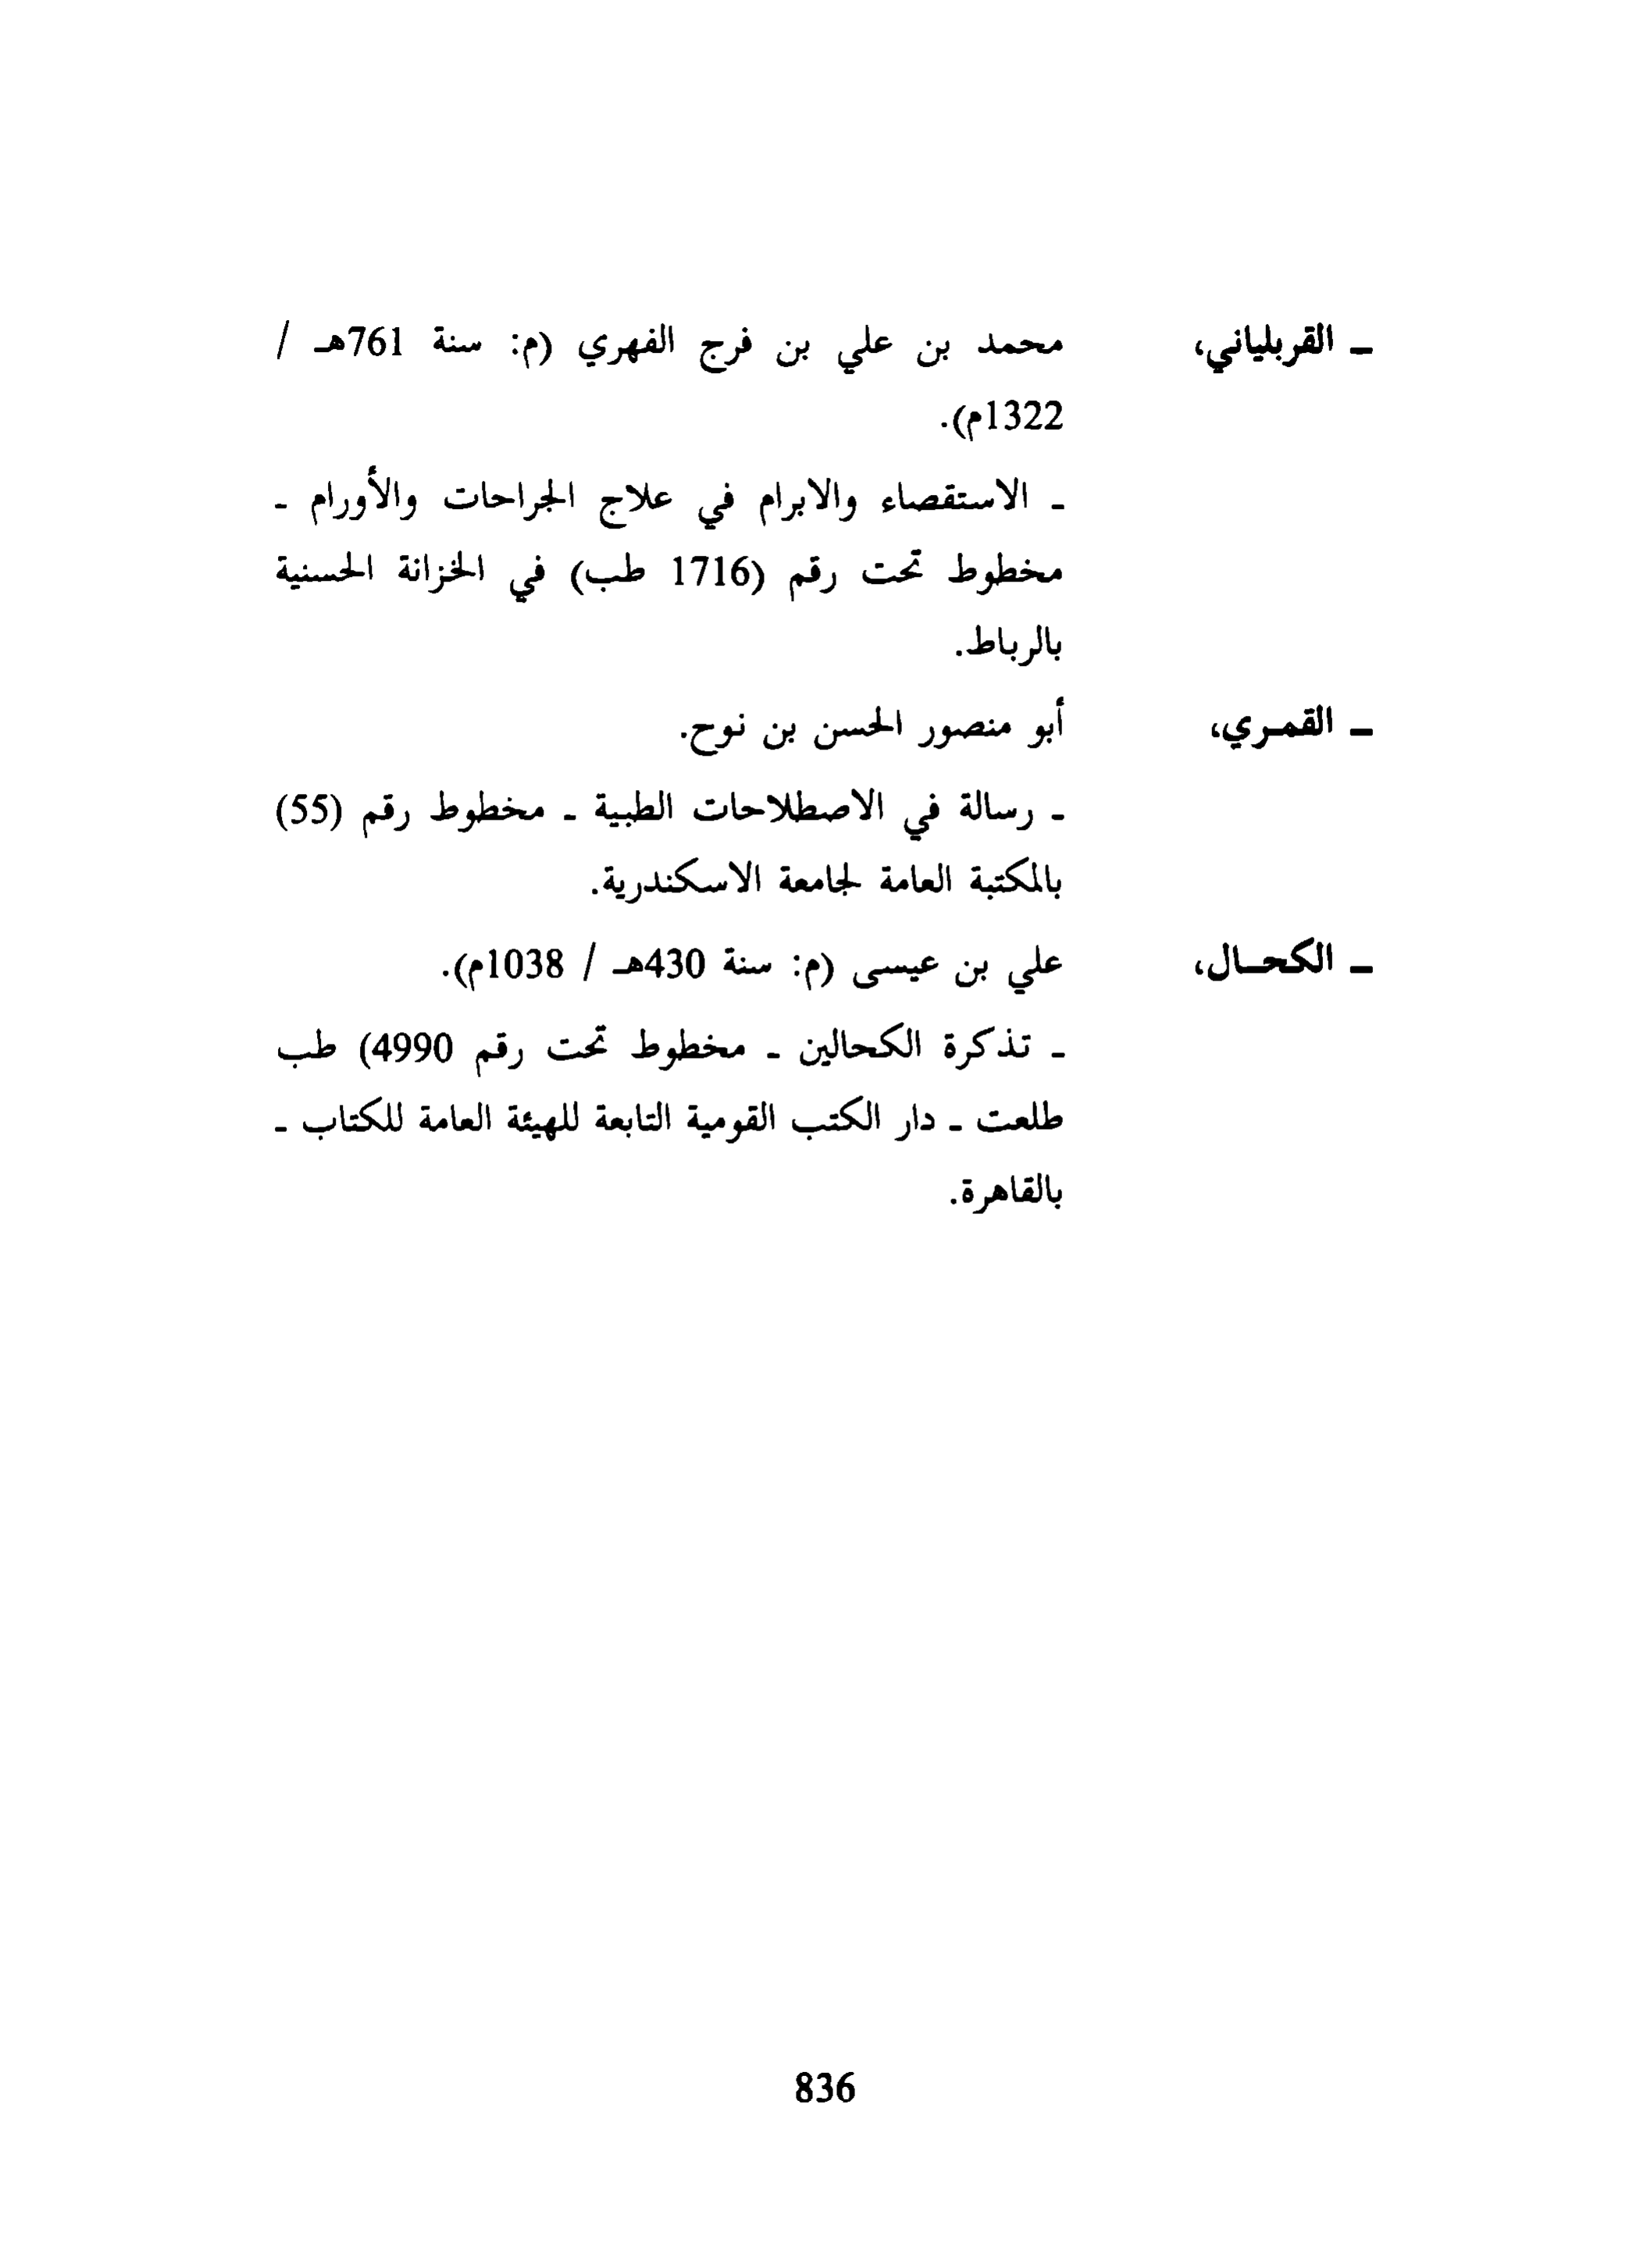 ـ القربلياني، محمد بن علي بن فرج الفهري (م: سنة 761هـ /
1322م).
ـ الاستقصاء والابرام في علاج الجراحات والأورام ـ
مخطوط تحت رقم (1716 طب) في الخزانة الحسنية
بالرباط.
ـ القمـري، أبو منصور الحسن بن نوح.
ـ رسالة في الاصطلاحات الطبية ـ مخطوط رقم (55)
بالمكتبة العامة لجامعة الاسكندرية.
ـ الكحـال، علي بن عيسى (م: سنة 430هـ / 1038م).
ـ تذكرة الكحالين ـ مخطوط تحت رقم 4990) طب
طلعت ـ دار الكتب القومية التابعة للهيئة العامة للكتاب ـ
بالقاهرة.
836